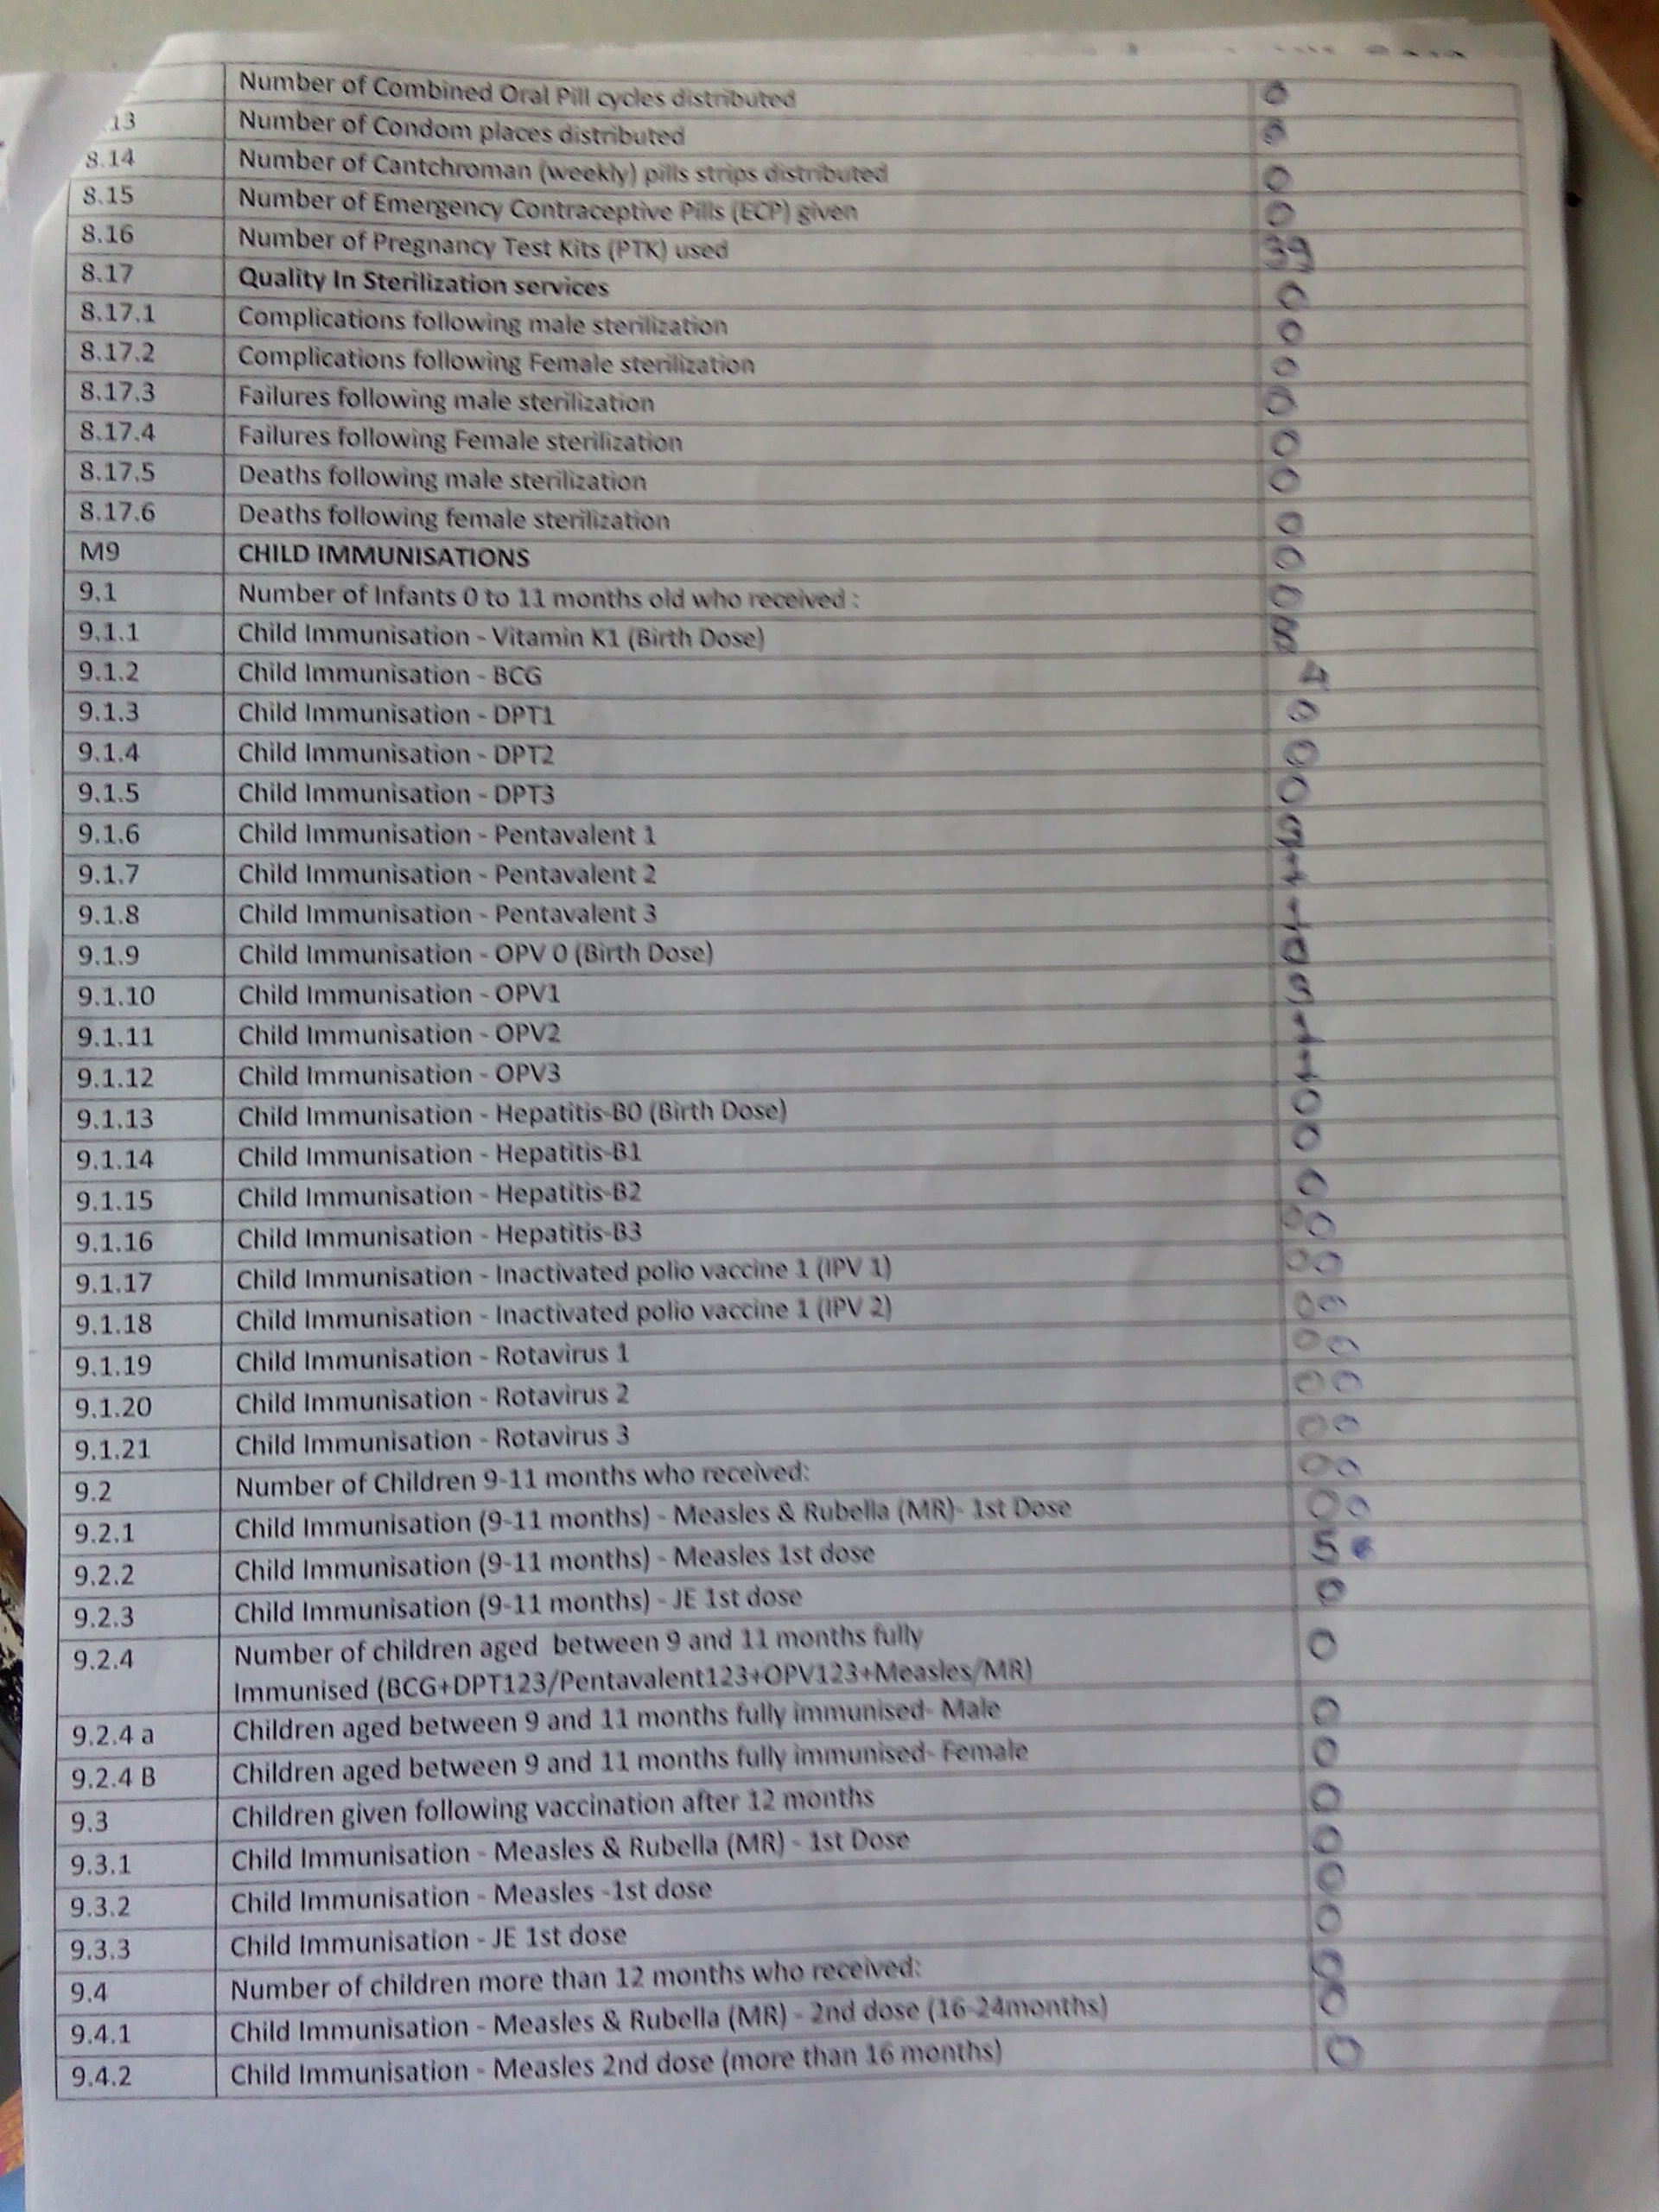 Number of Combined Oral Pill cycles distributed 0
.13 Number of Condom places distributed 0
8.14 Number of Cantchroman (weekly) pills strips distributed 0
8.15 Number of Emergency Contraceptive Pills (ECP) given 0
8.16 Number of Pregnancy Test Kits (PTK) used 39
8.17 Quality In Sterilization services 0
8.17.1 Complications following male sterilization 0
8.17.2 Complications following Female sterilization 0
8.17.3 Failures following male sterilization 0
8.17.4 Failures following Female sterilization 0
8.17.5 Deaths following male sterilization 0
8.17.6 Deaths following female sterilization 0
M9 CHILD IMMUNISATIONS 0
9.1 Number of Infants 0 to 11 months old who received : 0
9.1.1 Child Immunisation - Vitamin K1 (Birth Dose)
9.1.2 Child Immunisation - BCG 4
9.1.3 Child Immunisation - DPT1 0
9.1.4 Child Immunisation - DPT2 0
9.1.5 Child Immunisation - DPT3 0
9.1.6 Child Immunisation - Pentavalent 1
9.1.7 Child Immunisation - Pentavalent 2
9.1.8 Child Immunisation - Pentavalent 3
9.1.9 Child Immunisation - OPV 0 (Birth Dose) 0
9.1.10 Child Immunisation - OPV1
9.1.11 Child Immunisation - OPV2
9.1.12 Child Immunisation - OPV3
9.1.13 Child Immunisation - Hepatitis-B0 (Birth Dose) 0
9.1.14 Child Immunisation - Hepatitis-B1 0
9.1.15 Child Immunisation - Hepatitis-B2 0
9.1.16 Child Immunisation - Hepatitis-B3 0 0
9.1.17 Child Immunisation - Inactivated polio vaccine 1 (IPV 1) 0 0
9.1.18 Child Immunisation - Inactivated polio vaccine 1 (IPV 2) 0 0
9.1.19 Child Immunisation - Rotavirus 1 0 0
9.1.20 Child Immunisation - Rotavirus 2 0 0
9.1.21 Child Immunisation - Rotavirus 3 0 0
9.2 Number of Children 9-11 months who received: 0 0
9.2.1 Child Immunisation (9-11 months) - Measles & Rubella (MR)- 1st Dose 0 0
9.2.2 Child Immunisation (9-11 months) - Measles 1st dose 5
9.2.3 Child Immunisation (9-11 months) - JE 1st dose 0
9.2.4 Number of children aged between 9 and 11 months fully 0
Immunised (BCG+DPT123/Pentavalent123+OPV123+Measles/MR)
9.2.4 a Children aged between 9 and 11 months fully immunised- Male 0
9.2.4 B Children aged between 9 and 11 months fully immunised- Female 0
9.3 Children given following vaccination after 12 months 0
9.3.1 Child Immunisation - Measles & Rubella (MR) - 1st Dose 0
9.3.2 Child Immunisation - Measles -1st dose 0
9.3.3 Child Immunisation - JE 1st dose 0
9.4 Number of children more than 12 months who received: 0
9.4.1 Child Immunisation - Measles & Rubella (MR) - 2nd dose (16-24months) 0
9.4.2 Child Immunisation - Measles 2nd dose (more than 16 months) 0